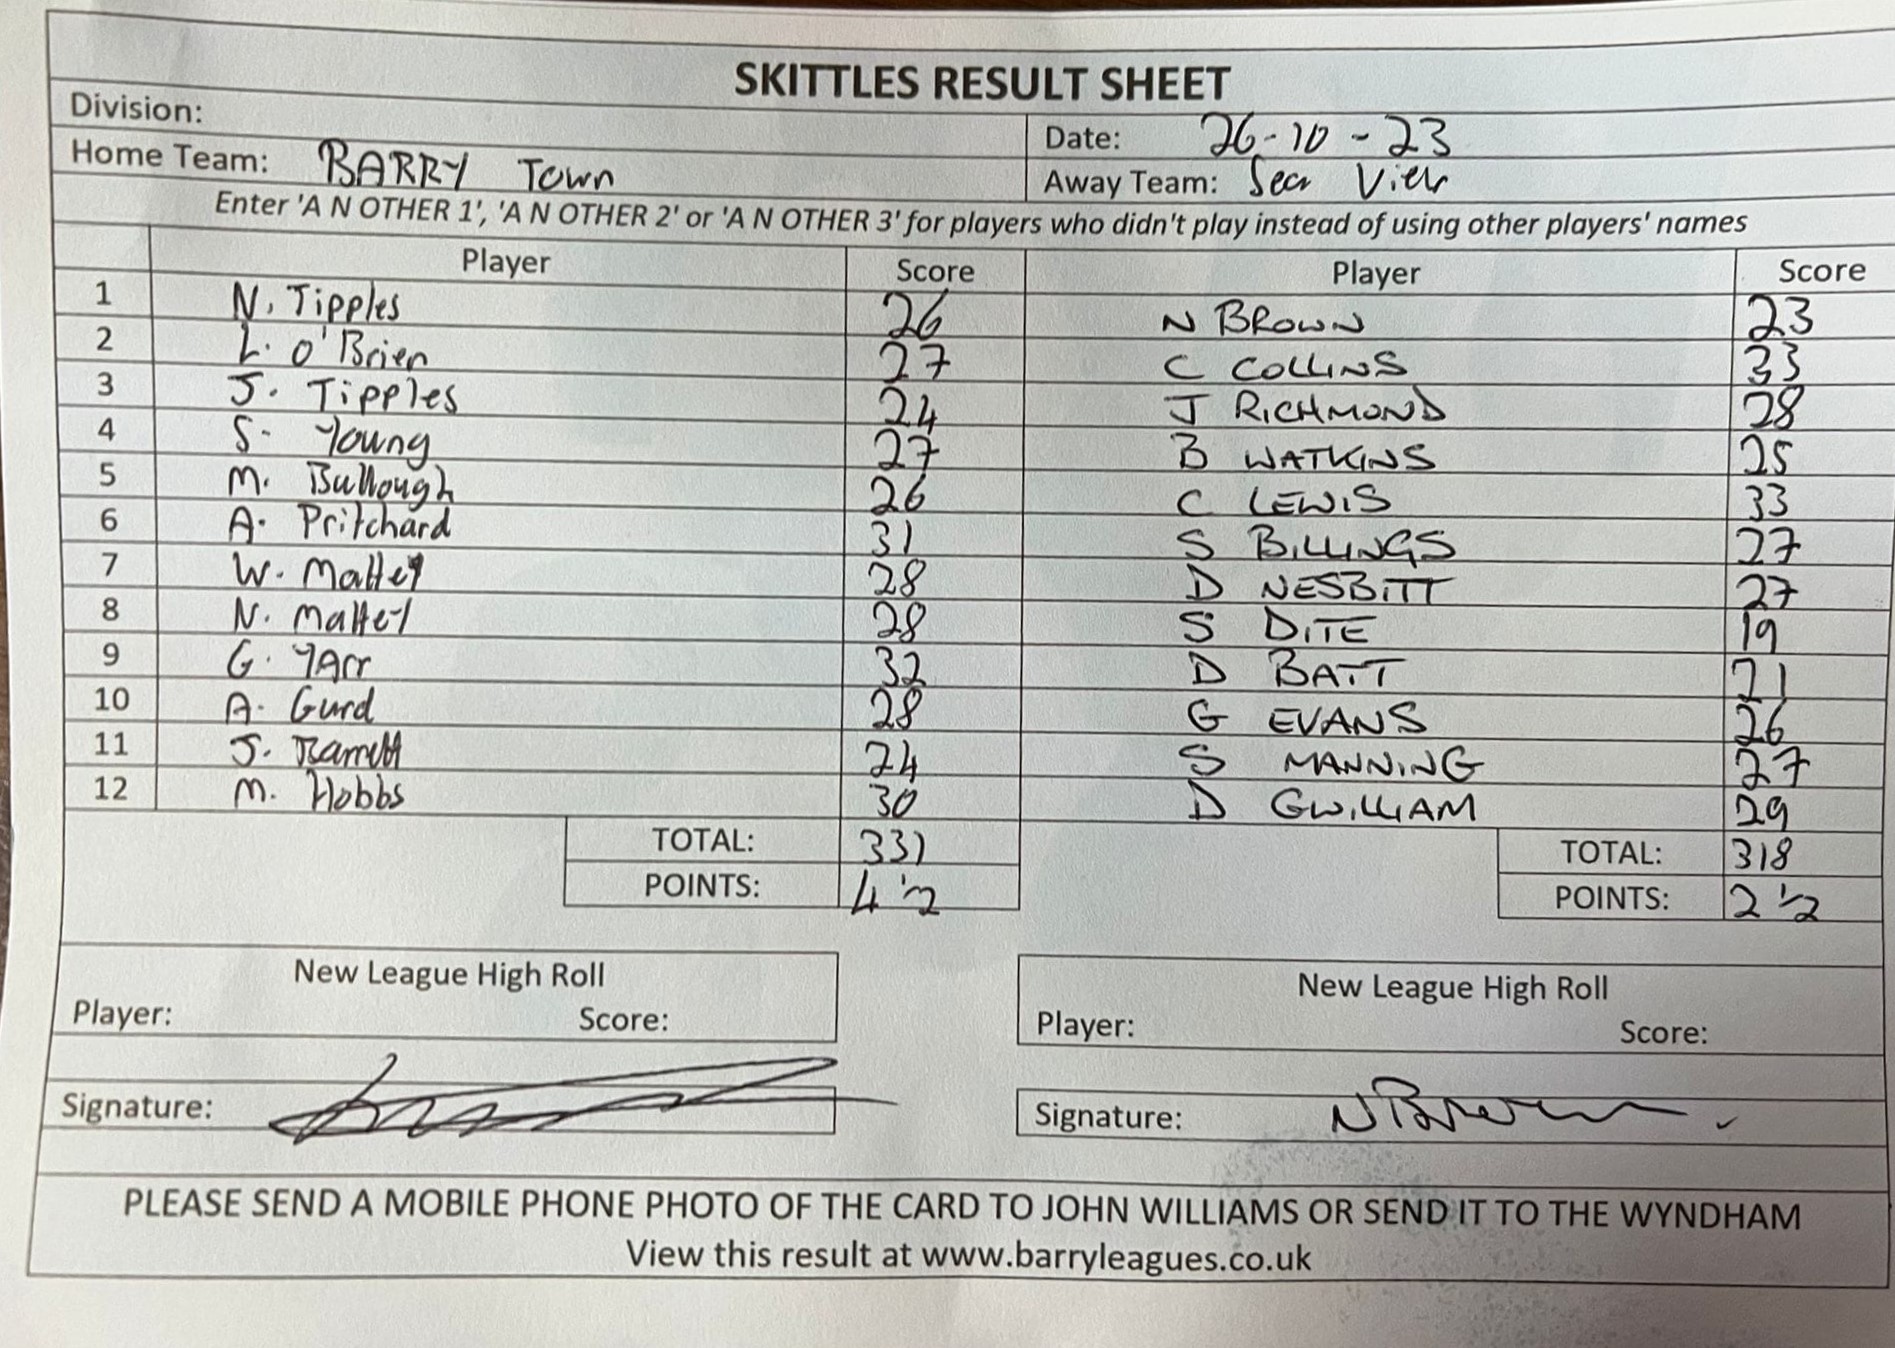 SKITTLES RESULT SHEET
Division:
Date: 26-10-23
Home Team: BARRY Town
Away Team: Sea View
Enter 'A N OTHER 1', 'A N OTHER 2' or 'A N OTHER 3' for players who didn't play instead of using other players' names
Player Score Player Score
1 N. Tipples 26 N BROWN 23
2 L. O'Brien 27 C COLLINS 33
3 J. Tipples 24 J RICHMOND 28
4 S. Young 27 B WATKINS 25
5 M. Bullough 26 C LEWIS 33
6 A. Pritchard 31 S BILLINGS 27
7 W. Mattey 28 D NESBITT 27
8 N. Mattey 28 S DITE 19
9 G. YArr 32 D BATT 21
10 A. Gurd 28 G EVANS 26
11 J. 24 S MANNING 27
12 M. Hobbs 30 D GWILLIAM 29
TOTAL: 331 TOTAL: 318
POINTS: 4 1/2 POINTS: 2 1/2
New League High Roll New League High Roll
Player: Score: Player: Score:
Signature: Signature: N Brown
PLEASE SEND A MOBILE PHONE PHOTO OF THE CARD TO JOHN WILLIAMS OR SEND IT TO THE WYNDHAM
View this result at www.barryleagues.co.uk